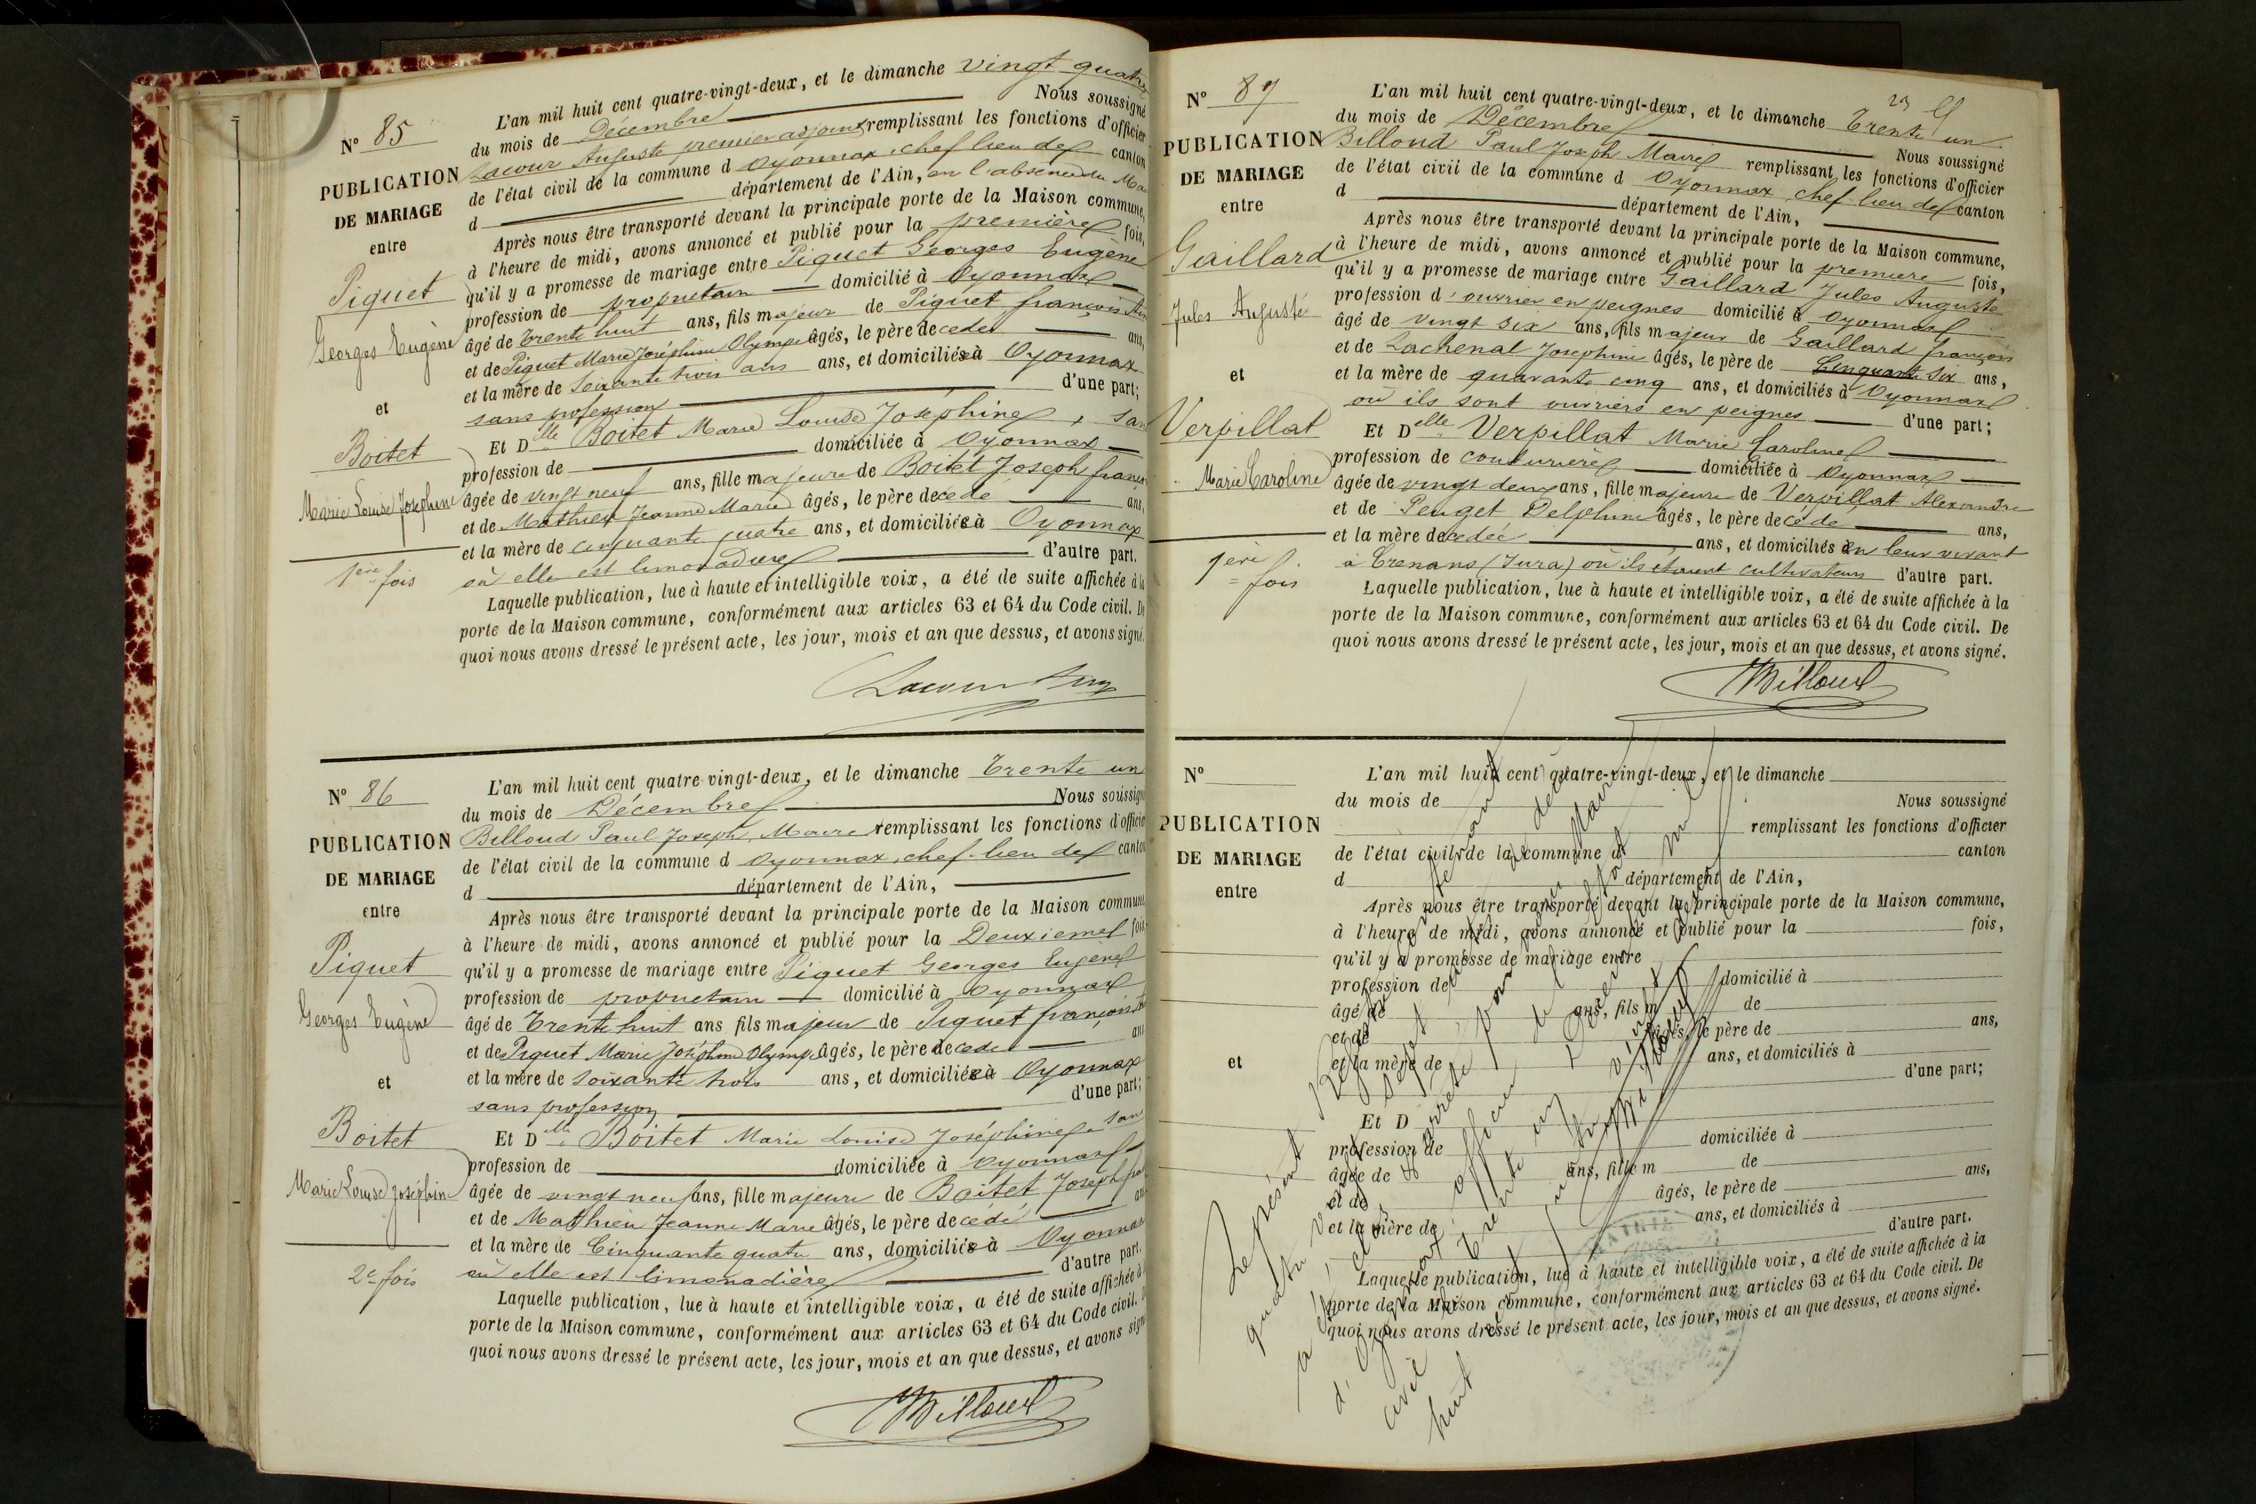 N° 85
PUBLICATION
DE MARIAGE
entre
Piquet
Georges Eugène
et
Boitet
Marie Louise Joséphine
1ère fois
L'an mil huit cent quatre-vingt-deux, et le dimanche vingt quatre
du mois de Décembre Nous soussigné
Lacour Auguste premier adjoint remplissant les fonctions d'officier
de l'état civil de la commune d Oyonnax, chef lieu de canton
d département de l'Ain, en l'absence du
Après nous être transporté devant la principale porte de la Maison commune,
à l'heure de midi, avons annoncé et publié pour la première fois,
qu'il y a promesse de mariage entre Piquet Georges Eugène
profession de propriétaire domicilié à Oyonnax
âgé de trente huit ans, fils majeur de Piquet françois
et de Piquet Marie Joséphine Olympe âgés, le père décédé ans,
et la mère de soixante trois ans ans, et domiciliés à Oyonnax
sans profession d'une part;
Et Dlle Boitet Marie Louise Joséphine, san
profession de domiciliée à Oyonnax
âgée de vingt neuf ans, fille majeure de Boitet Joseph françois
et de Mathieu Jeanne Marie âgés, le père décédé ans,
et la mère de cinquante quatre ans, et domiciliés à Oyonnax
où elle est limonadière d'autre part.
Laquelle publication, lue à haute et intelligible voix, a été de suite affichée à la
porte de la Maison commune, conformément aux articles 63 et 64 du Code civil. De
quoi nous avons dressé le présent acte, les jour, mois et an que dessus, et avons signé.
Lacour
N° 86
PUBLICATION
DE MARIAGE
entre
Piquet
Georges Eugène
et
Boitet
Marie Louise Joséphine
2e fois
L'an mil huit cent quatre-vingt-deux, et le dimanche Trente un
du mois de Décembre Nous soussigné
Billoud Paul Joseph, Maire remplissant les fonctions d'officier
de l'état civil de la commune d Oyonnax, chef-lieu de canton
d département de l'Ain,
Après nous être transporté devant la principale porte de la Maison commune,
à l'heure de midi, avons annoncé et publié pour la Deuxième fois,
qu'il y a promesse de mariage entre Piquet Georges Eugène
profession de propriétaire domicilié à Oyonnax
âgé de Trente huit ans fils majeur de Piquet françois
et de Piquet Marie Joséphine Olympe âgés, le père décédé ans
et la mère de soixante trois ans, et domiciliés à Oyonnax
sans profession d'une part;
Et Dlle Boitet Marie Louise Joséphine, san
profession de domiciliée à Oyonnax
âgée de vingt neuf ans, fille majeure de Boitet Joseph
et de Mathieu Jeanne Marie âgés, le père décédé ans
et la mère de Cinquante quatre ans, domiciliés à Oyonnax
où elle est limonadière d'autre part.
Laquelle publication, lue à haute et intelligible voix, a été de suite affichée à
porte de la Maison commune, conformément aux articles 63 et 64 du Code civil.
quoi nous avons dressé le présent acte, les jour, mois et an que dessus, et avons signé
Billoud
N° 87
PUBLICATION
DE MARIAGE
entre
Gaillard
Jules Auguste
et
Verpillat
Marie Caroline
1ère fois
23
L'an mil huit cent quatre-vingt-deux, et le dimanche Trente un
du mois de Décembre Nous soussigné
Billoud Paul Joseph Maire remplissant les fonctions d'officier
de l'état civil de la commune d Oyonnax, chef-lieu de canton
d département de l'Ain,
Après nous être transporté devant la principale porte de la Maison commune,
à l'heure de midi, avons annoncé et publié pour la première fois,
qu'il y a promesse de mariage entre Gaillard Jules Auguste
profession d'ouvrier en peignes domicilié à Oyonnax
âgé de vingt six ans, fils majeur de Gaillard françois
et de Lachenal Josephine âgés, le père de Cinquante six ans,
et la mère de quarante cinq ans, et domiciliés à Oyonnax
où ils sont ouvriers en peignes d'une part;
Et Delle Verpillat Marie Caroline
profession de couturière domiciliée à Oyonnax
âgée de vingt deux ans, fille majeure de Verpillat Alexandre
et de Penget Delphine âgés, le père décédé ans,
et la mère décédée ans, et domiciliés en leur vivant
à Crenans (Jura) où ils étaient cultivateurs d'autre part.
Laquelle publication, lue à haute et intelligible voix, a été de suite affichée à la
porte de la Maison commune, conformément aux articles 63 et 64 du Code civil. De
quoi nous avons dressé le présent acte, les jour, mois et an que dessus, et avons signé.
Billoud
N°
PUBLICATION
DE MARIAGE
entre
et
L'an mil huit cent quatre-vingt-deux, et le dimanche
du mois de Nous soussigné
remplissant les fonctions d'officier
de l'état civil de la commune d canton
d département de l'Ain,
Après nous être transporté devant la principale porte de la Maison commune,
à l'heure de midi, avons annoncé et publié pour la fois,
qu'il y a promesse de mariage entre
profession de domicilié à
âgé de ans, fils m de
et de âgés, le père de ans,
et la mère de ans, et domiciliés à
d'une part;
Et D
profession de domiciliée à
âgée de ans, fille m de
et de âgés, le père de ans,
et la mère de ans, et domiciliés à
d'autre part.
Laquelle publication, lue à haute et intelligible voix, a été de suite affichée à la
porte de la Maison commune, conformément aux articles 63 et 64 du Code civil. De
quoi nous avons dressé le présent acte, les jour, mois et an que dessus, et avons signé.
Le présent Registre contenant
quatre vingt sept actes a
été clos et arrêté par nous Maire
d'Oyonnax officier de l'état
civil le trente un Décembre mil
huit cent quatre vingt deux
Billoud